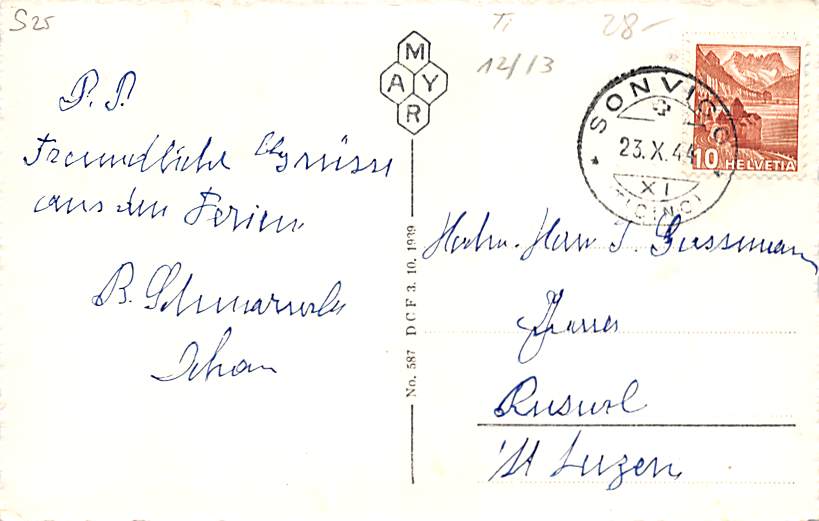 S25
Ti
28-
12/13
MAYR
SONVICO
23.X.44
XI
(TICINO)
10 HELVETIA
P. P.
Freundliche Grüsse
aus den Ferien
B.
No. 587 D C F 3. 10. 1939
Hochw. Herrn J. Gassmann
Pfarrer
Ruswil
Kt Luzern